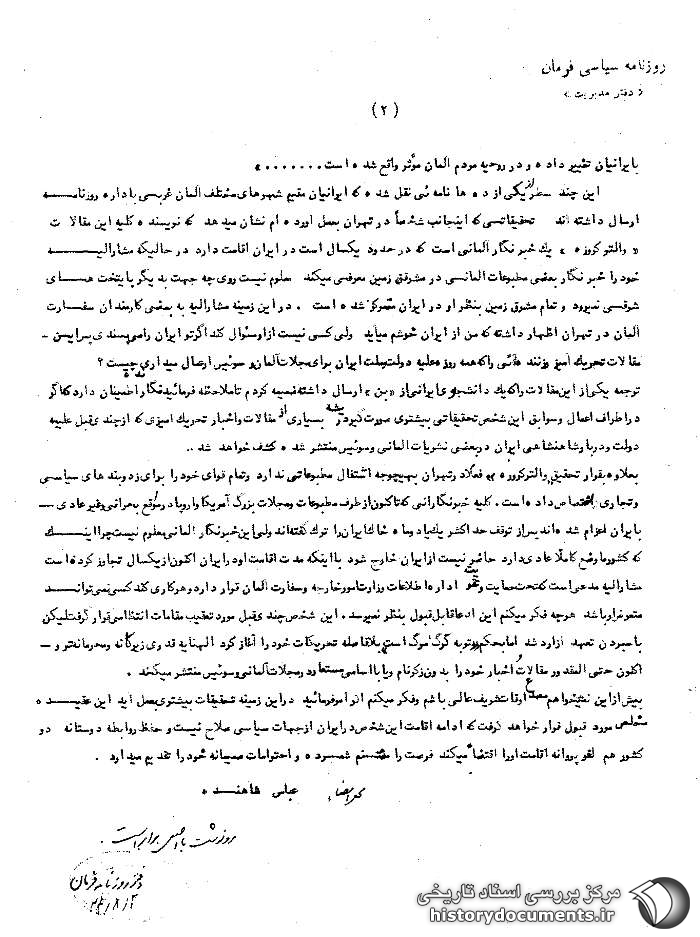 روزنامه سیاسی فرمان
« دفتر مدیریت »
( ۲ )
با ایرانیان تغییر داده و در روحیه مردم المان مؤثر واقع شده است . . . . . . . »
این چند سطر از یکی از ده ها نامه ئی نقل شده که ایرانیان مقیم شهرهای مختلف المان غربی باداره روزنامه
ارسال داشته اند تحقیقاتی که اینجانب شخصاً در تهران بعمل اورده ام نشان میدهد که نویسنده کلیه این مقالات
« والتر کروزه » یك خبر نگار آلمانی است که در حدود یکسال است در ایران اقامت دارد در حالیکه مشارالیه
خود را خبر نگار بعضی مطبوعات المانی در مشرق زمین معرفی میکند معلوم نیست روی چه جهت به دیگر پایتخت های
شرقی نمیرود و تمام مشرق زمین بنظر او در ایران متمرکز شده است . در این زمینه مشارالیه به بعضی کارمندان سفارت
المان در تهران اظهار داشته که من از ایران خوشم میآید ولی کسی نیست از او سئوال کند اگر تو ایران را می پسندی پس این -
مقالات تحریك امیز و زننده ئی را که همه روزه علیه دولت و ملت ایران برای مجلات آلمان و سوئیس ارسال میداری چیست ؟
ترجمه یکی از این مقالات را که یك دانشجوی ایرانی از « بن » ارسال داشته ضمیمه کردم تا ملاحظه فرمائید بنده نگار اطمینان دارد که اگر
در اطراف اعمال و سوابق این شخص تحقیقاتی بیشتری صورت گیرد ریشه بسیاری از مقالات و اخبار تحریك امیزی که از چندی قبل علیه
دولت و دربار شاهنشاهی ایران در بعضی نشریات المانی و سوئیس منتشر شده کشف خواهد شد ..
بعلاوه بقرار تحقیق والتر کروزه » فعلا در تهران بهیچوجه اشتغال مطبوعاتی ندارد و تمام قوای خود را برای زد و بند های سیاسی
و تجاری اختصاص داده است . کلیه خبرنگارانی که تا کنون از طرف مطبوعات و مجلات بزرگ آمریکا و اروپا در مواقع بحرانی و غیر عادی -
بایران اعزام شده اند پس از توقف حد اکثر یك یا دو ماه خاك ایران را ترك گفته اند ولی این خبرنگار المانی معلوم نیست چرا اینك
که کشور ما وضع کاملا عادی دارد حاضر نیست از ایران خارج شود با اینکه مدت اقامت او در ایران اکنون از یکسال تجاوز کرده است
مشارالیه مدعی است که تحت حمایت و اداره اطلاعات وزارت امور خارجه و سفارت المان قرار دارد و هر کاری کند کسی نمی تواند
متعرض او باشد هر چه فکر میکنم این ادعا قابل قبول بنظر نمیرسد . این شخص چندی قبل مورد تعقیب مقامات انتظامی قرار گرفت لیکن
با سپردن تعهد ازاد شد اما بحکم « توبه گرگ مرگ است » بلافاصله تحریکات خود را آغاز کرد المنهایه قدری زیرکانه و محرمانه تر و -
اکنون حتی المقدور مقالات و اخبار خود را بدون ذکر نام و یا با اسامی مستعار در مجلات آلمانی و سوئیس منتشر میکند .
بیش از این نمیخواهم مصدع اوقات شریف عالی باشم و فکر میکنم اگر امر فرمائید در این زمینه تحقیقات بیشتری بعمل اید این عقیده
مخلص مورد قبول قرار خواهد گرفت که ادامه اقامت این شخص در ایران از جهات سیاسی صلاح نیست و حفظ روابط دوستانه دو
کشور هم لغو پروانه اقامت او را اقتضا میکند فرصت را مغتنم شمرده و احترامات صمیمانه خود را تقدیم میدارد .
محل امضاء عباس شاهنده
رونوشت با اصل برابر است .
دفتر روزنامه فرمان
مرکز بررسی اسناد تاریخی
historydocuments.ir